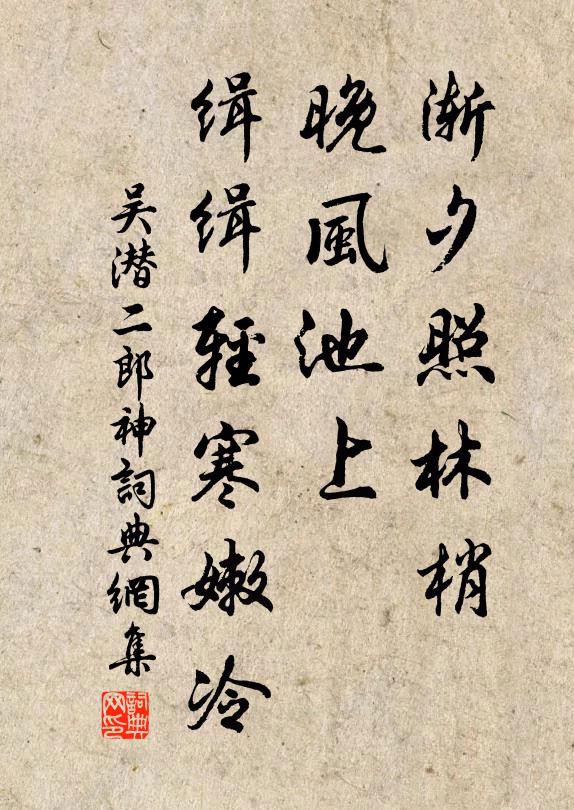 漸夕照林梢
晚風池上
緝緝輕寒嫩冷
吴潜二郎神詞典網集
詞典网印